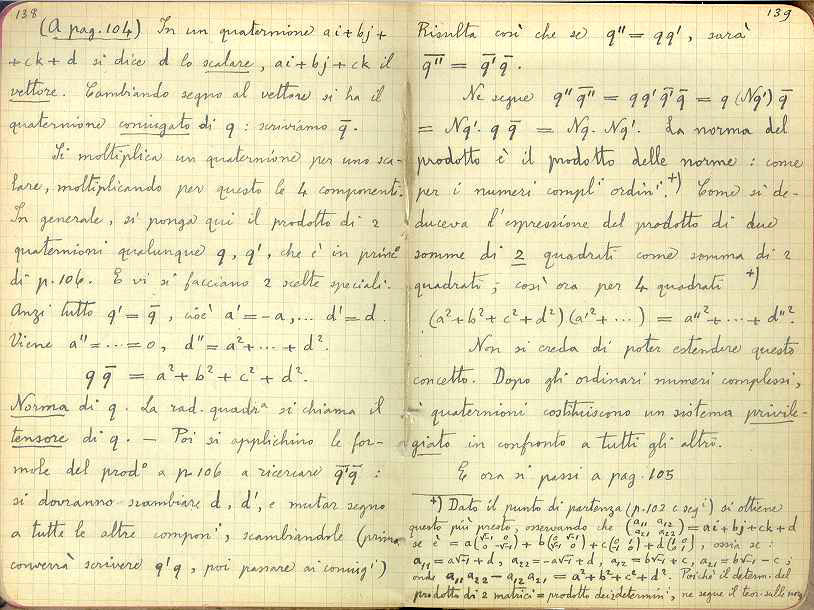 138
(A pag. 104) In un quaternione ai+bj+
+ck+d si dice d lo scalare, ai+bj+ck il
vettore. Cambiando segno al vettore si ha il
quaternione coniugato di q : scriviamo q̅.
Si moltiplica un quaternione per uno sca-
lare, moltiplicando per questo le 4 componenti.
In generale, si ponga qui il prodotto di 2
quaternioni qualunque q, q', che è in princº
di p. 106. E vi si facciano 2 scelte speciali.
Anzi tutto q' = q̅, cioè a' = -a, ... d' = d.
Viene a'' = ... = 0, d'' = a² + ... + d².
q q̅ = a² + b² + c² + d².
Norma di q. La rad. quadrª si chiama il
tensore di q. — Poi si applichino le for-
mole del prodº a p. 106 a ricercare q̅'q̅ :
si dovranno scambiare d, d', e mutar segno
a tutte le altre componⁱ, scambiandole (prima
converrà scrivere q'q, poi passare ai coniugⁱ)
139
Risulta così che se q'' = qq', sarà
q̅'' = q̅' q̅.
Ne segue q'' q̅'' = qq' q̅' q̅ = q (Nq') q̅
= Nq'. q q̅ = Nq. Nq'. La norma del
prodotto è il prodotto delle norme : come
per i numeri complⁱ ordinⁱ.⁺) Come si de-
duceva l'espressione del prodotto di due
somme di 2 quadrati come somma di 2
quadrati ; così ora per 4 quadrati ⁺)
(a²+b²+c²+d²)(a'²+...) = a''²+...+d''².
Non si creda di poter estendere questo
concetto. Dopo gli ordinari numeri complessi,
i quaternioni costituiscono un sistema privile-
giato in confronto a tutti gli altri.
E ora si passi a pag. 105
⁺) Dato il punto di partenza (p. 102 e segⁱ) si ottiene
questo più presto, osservando che (a₁₁ a₁₂ / a₂₁ a₂₂) = ai+bj+ck+d
se è = a(√-1 0 / 0 -√-1) + b(0 √-1 / √-1 0) + c(0 1 / -1 0) + d(1 0 / 0 1), ossia se :
a₁₁ = a√-1 + d, a₂₂ = -a√-1 + d, a₁₂ = b√-1 + c, a₂₁ = b√-1 - c ;
onde a₁₁a₂₂ - a₁₂a₂₁ = a²+b²+c²+d². Poichè il determ. del
prodotto di 2 matrici = prodotto dei 2 determinⁱ, ne segue il teor. sulle